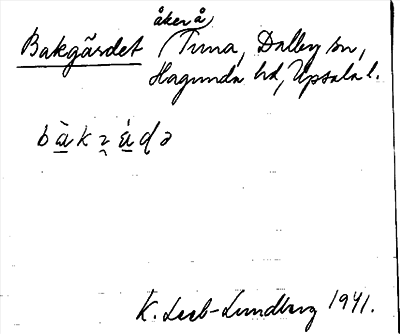 åker å
Bakgärdet Tuna, Dalby sn,
Hagunda hd, Upsala l.
K. Leeb-Lundberg 1941.